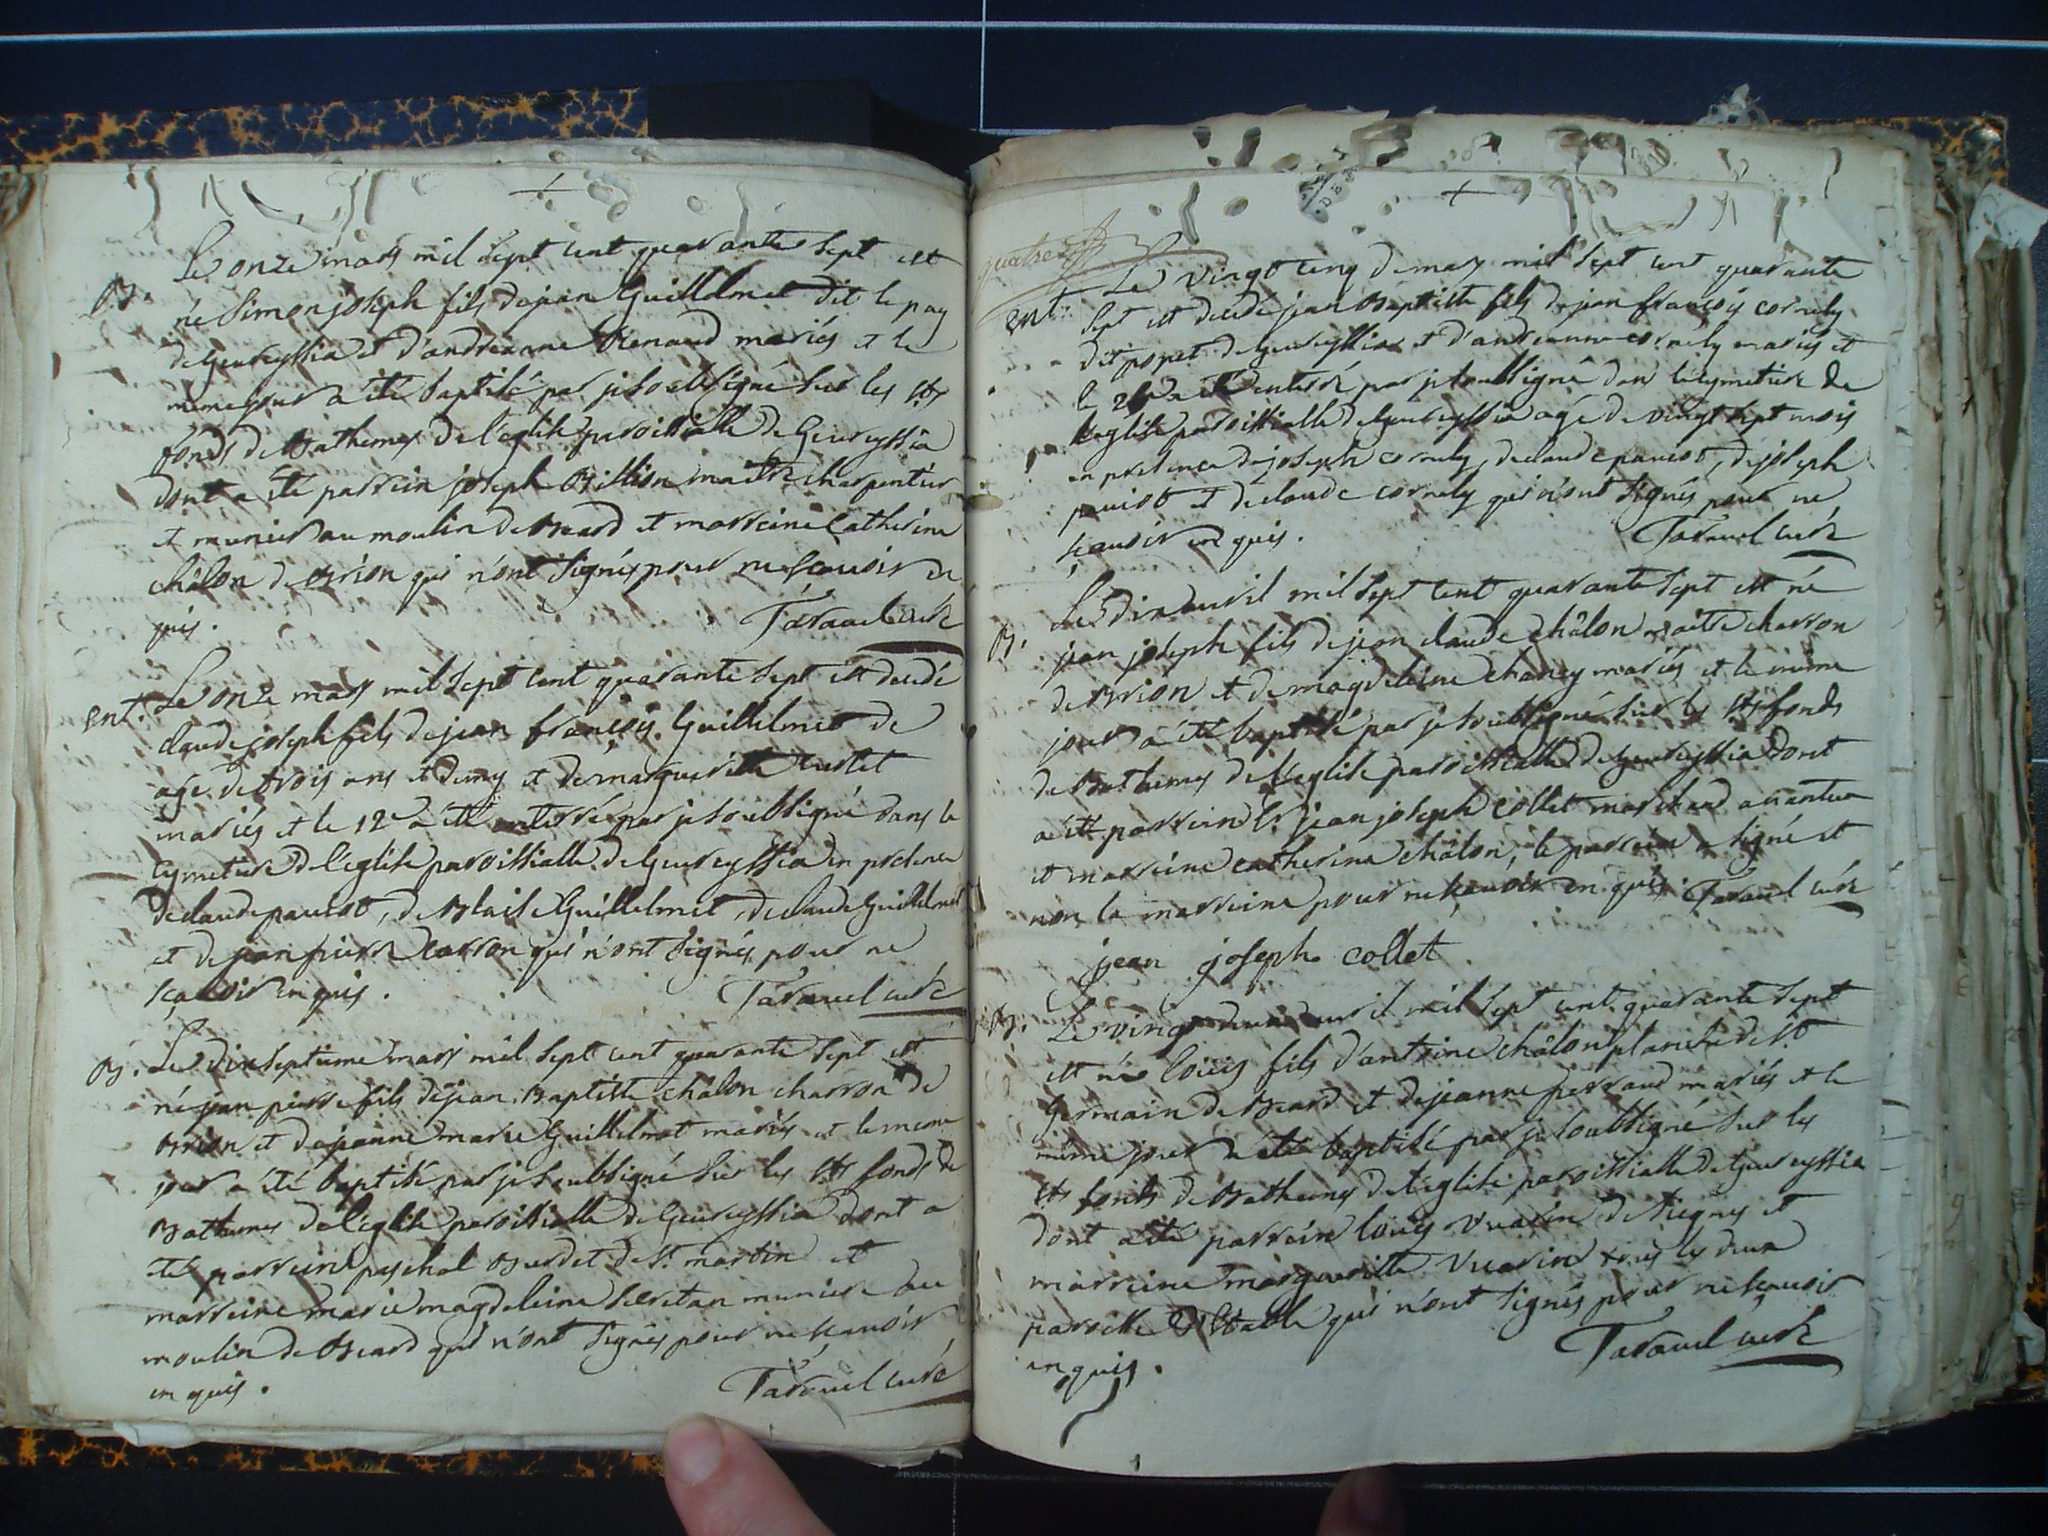 Le onze mars mil sept cent quarante sept est
B. né Simon joseph fils de jean Guillelmet dit le pay
de Geureyssia et d'andreanne Renaud mariés et le
meme jour a été baptisé par je soubsigné sur les sts
fonds de Bathemes de l'eglise paroissialle de Geureyssia
dont a été parrein joseph Billion maitre charpentier
et munier au moulin de Beard et marreine Catherine
châlon de Brion qui n'ont signés pour ne scauoir de
quis. Tarauel curé
ent. Le onze mars mil sept cent quarante sept est decedé
claude joseph fils de jean françois Guillelmet de
age de trois ans et demy et de margueritte turlet
mariés et le 12e a été enterré par je soubsigné dans le
cymetiere de l'eglise paroissialle de Geureyssia en presence
de claude pauiot, de Blaise Guillelmet, de claude Guillelmet
et de jean pierre carron qui n'ont signés pour ne
sçauoir enquis. Tarauel curé
B. Le dixseptieme mars mil sept cent quarante sept est
né jean pierre fils de jean Baptiste châlon charron de
Brion et de jeanne marie Guillelmet mariés et le meme
jour a été baptisé par je soubsigné sur les sts fonds de
Bathemes de l'eglise paroissialle de Geureyssia dont a
été parrein paschal Burdet de st. martin et
marreine marie magdeleine seritan muniere au
moulin de Beard qui n'ont signés pour ne scauoir
en quis. Tarauel curé
Le vingt cinq de mars mil sept cent quarante
ent. sept est decedé jean Baptiste fils de jean françois cornely
dit popet de Geureyssia et d'andreanne cornely mariés et
le 26e a été enterré par je soubsigné dans le cymetiere de
l'eglise paroissialle de Geureyssia agé de vingt sept mois
en presence de joseph cornely, de claude pauiot, de joseph
pauiot et de claude cornely qui n'ont signés pour ne
scauoir en quis. Tarauel curé
Le dix auril mil sept cent quarante sept est né
B. jean joseph fils de jean claude châlon maitre charron
de Brion et de magdeleine chaney mariés et le même
jour a été baptisé par je soubsigné sur les sts fonds
de Bathemes de l'eglise paroissialle de Geureyssia dont
a été parrein Sr jean joseph collet marchand a nantua
et marreine catherine châlon, le parrein a signé et
non la marreine pour ne scauoir en quis. Tarauel curé
jean joseph collet
B. Le vingt deux auril mil sept cent quarante sept
est né loüis fils d'antoine châlon planche de st.
Germain de Beard et de jeanne perraud mariés et le
même jour a été baptisé par je soubsigné sur les
sts fonds de Bathemes de l'eglise paroissialle de Geureyssia
dont a été parrein loüis vuarin de et
marreine margueritte vuarin tous les deux
paroisse qui n'ont signés pour ne scauoir
en quis. Tarauel curé